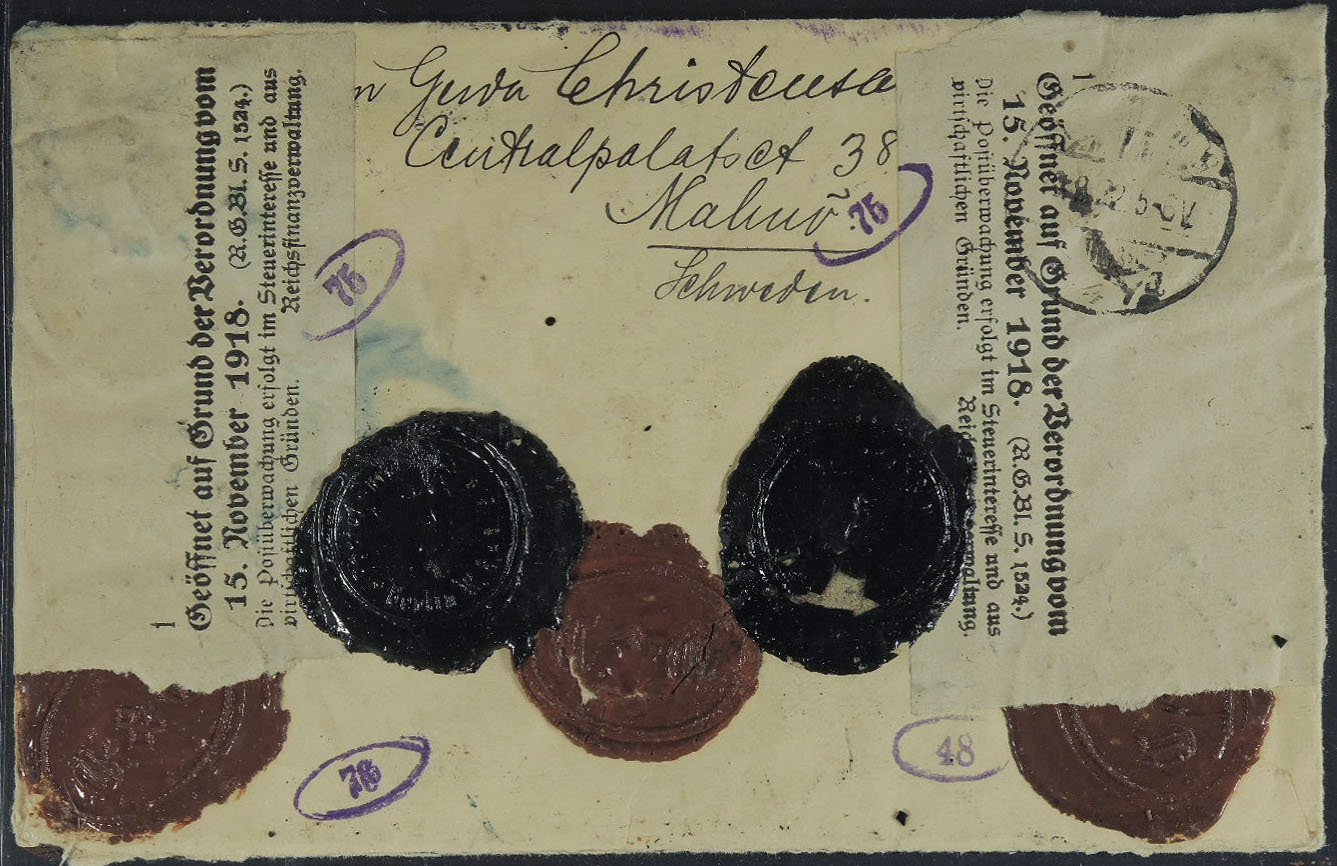 n Gerda Christensen
Centralpalatset 38
Malmö
Schweden.
1
Geöffnet auf Grund der Verordnung vom
15. November 1918. (R.G.Bl. S. 1324.)
Die Postüberwachung erfolgt im Steuerinteresse und aus
wirtschaftlichen Gründen. Reichsfinanzverwaltung.
1
Geöffnet auf Grund der Verordnung vom
15. November 1918. (R.G.Bl. S. 1324.)
Die Postüberwachung erfolgt im Steuerinteresse und aus
wirtschaftlichen Gründen. Reichsfinanzverwaltung.
75
75
76
48
Berlin